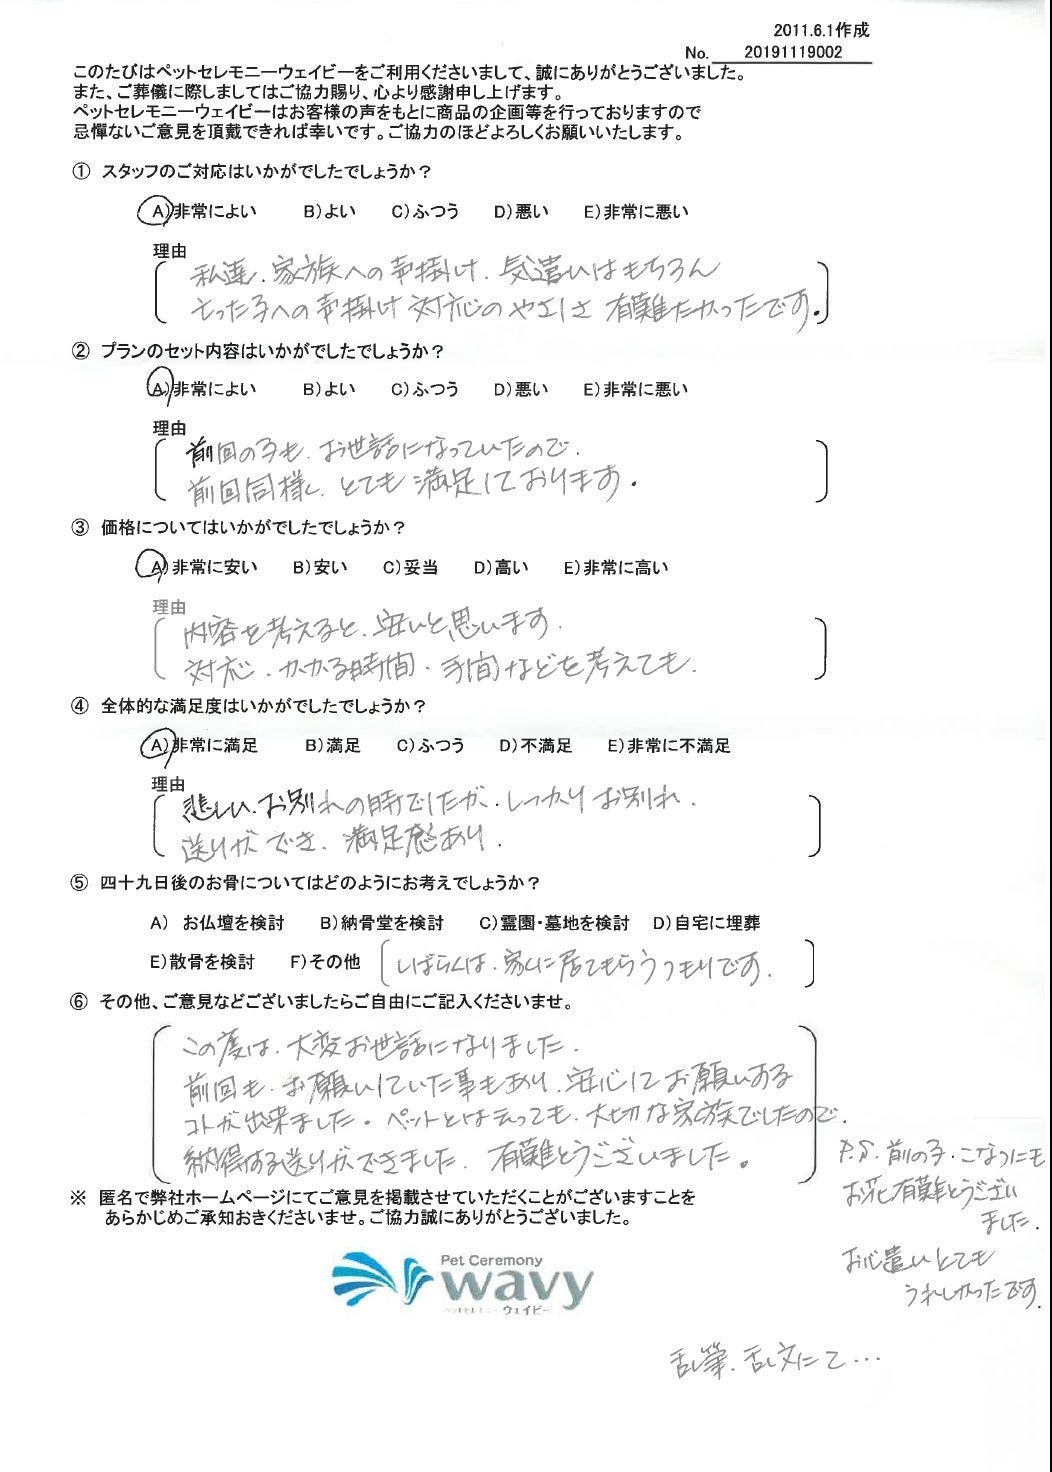 2011.6.1作成
No. 20191119002
このたびはペットセレモニーウェイビーをご利用くださいまして、誠にありがとうございました。
また、ご葬儀に際しましてはご協力賜り、心より感謝申し上げます。
ペットセレモニーウェイビーはお客様の声をもとに商品の企画等を行っておりますので
忌憚ないご意見を頂戴できれば幸いです。ご協力のほどよろしくお願いいたします。
① スタッフのご対応はいかがでしたでしょうか？
A)非常によい B)よい C)ふつう D)悪い E)非常に悪い
理由
私達、家族への声掛け、気遣いはもちろん
とった子への声掛け 対応のやさしさ 有難たかったです。
② プランのセット内容はいかがでしたでしょうか？
A)非常によい B)よい C)ふつう D)悪い E)非常に悪い
理由
前回の子も、お世話になっていたので、
前回同様し、とても満足しております。
③ 価格についてはいかがでしたでしょうか？
A)非常に安い B)安い C)妥当 D)高い E)非常に高い
理由
内容を考えると、安いと思います。
対応、かかる時間、手間などを考えても、
④ 全体的な満足度はいかがでしたでしょうか？
A)非常に満足 B)満足 C)ふつう D)不満足 E)非常に不満足
理由
悲しい、お別れの時でしたが、しっかりお別れ、
送りができ、満足感あり、
⑤ 四十九日後のお骨についてはどのようにお考えでしょうか？
A) お仏壇を検討 B)納骨堂を検討 C)霊園・墓地を検討 D)自宅に埋葬
E)散骨を検討 F)その他 しばらくは、家に居てもらうつもりです。
⑥ その他、ご意見などございましたらご自由にご記入くださいませ。
この度は、大変お世話になりました。
前回も、お願いしていた事もあり、安心してお願いする
コトが出来ました。ペットとは云っても、大切な家族でしたので、
納得する送りができました、有難とうございました。
P.S. 前の子・こなつにも
お花有難とうござい
ました。
お心遣いとても
うれしかったです。
※ 匿名で弊社ホームページにてご意見を掲載させていただくことがございますことを
あらかじめご承知おきくださいませ。ご協力誠にありがとうございました。
Pet Ceremony
wavy
ペットセレモニー ウェイビー
乱筆、乱文にて…